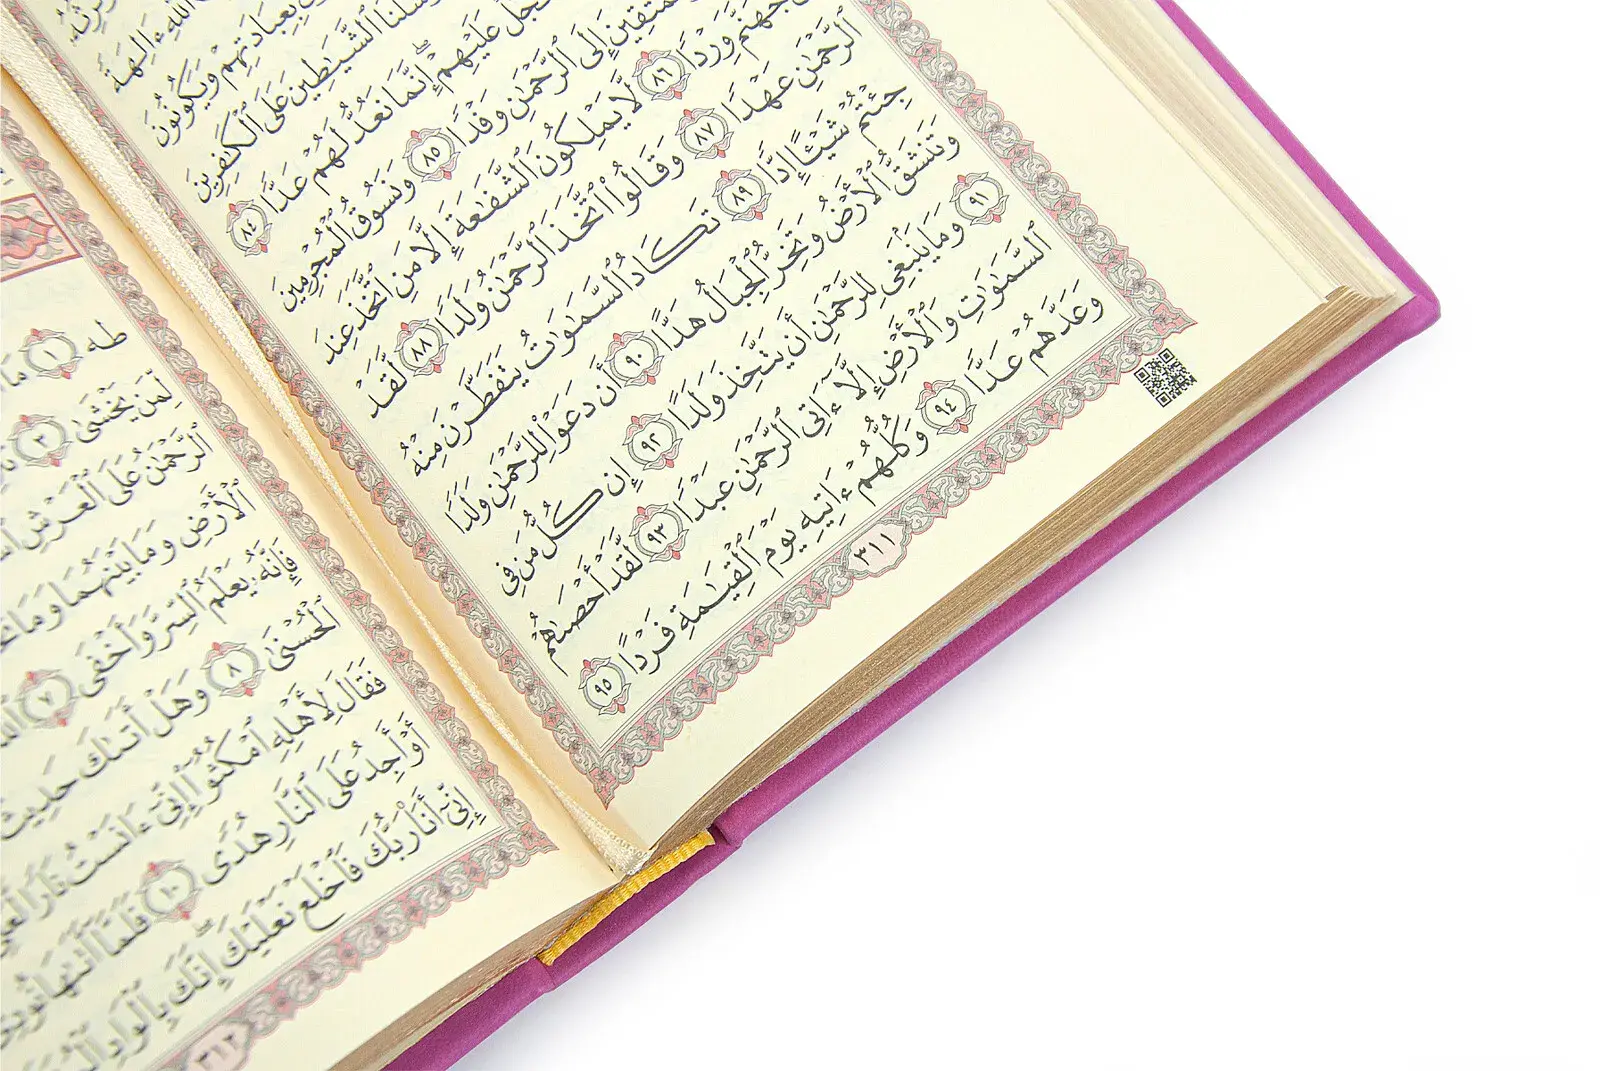 ٱللَّهِ ءَالِهَةً
بِعِبَادَتِهِمْ وَيَكُونُونَ
ٱلشَّيَٰطِينَ عَلَى ٱلْكَٰفِرِينَ
عَلَيْهِمْ إِنَّمَا نَعُدُّ لَهُمْ عَدًّا ٨٤
إِلَى ٱلرَّحْمَٰنِ وَفْدًا ٨٥ وَنَسُوقُ ٱلْمُجْرِمِينَ
جَهَنَّمَ وِرْدًا ٨٦ لَّا يَمْلِكُونَ ٱلشَّفَٰعَةَ إِلَّا مَنِ ٱتَّخَذَ عِندَ
ٱلرَّحْمَٰنِ عَهْدًا ٨٧ وَقَالُوا۟ ٱتَّخَذَ ٱلرَّحْمَٰنُ وَلَدًا ٨٨ لَّقَدْ
جِئْتُمْ شَيْـًٔا إِدًّا ٨٩ تَكَادُ ٱلسَّمَٰوَٰتُ يَتَفَطَّرْنَ مِنْهُ
وَتَنشَقُّ ٱلْأَرْضُ وَتَخِرُّ ٱلْجِبَالُ هَدًّا ٩٠ أَن دَعَوْا۟ لِلرَّحْمَٰنِ وَلَدًا
٩١ وَمَا يَنۢبَغِى لِلرَّحْمَٰنِ أَن يَتَّخِذَ وَلَدًا ٩٢ إِن كُلُّ مَن فِى
ٱلسَّمَٰوَٰتِ وَٱلْأَرْضِ إِلَّآ ءَاتِى ٱلرَّحْمَٰنِ عَبْدًا ٩٣ لَّقَدْ أَحْصَىٰهُمْ
وَعَدَّهُمْ عَدًّا ٩٤ وَكُلُّهُمْ ءَاتِيهِ يَوْمَ ٱلْقِيَٰمَةِ فَرْدًا ٩٥
٣١١
طه ١
لِّمَن يَخْشَىٰ ٣
ٱلرَّحْمَٰنُ عَلَى ٱلْعَرْشِ
ٱلْأَرْضِ وَمَا بَيْنَهُمَا وَمَا
فَإِنَّهُۥ يَعْلَمُ ٱلسِّرَّ وَأَخْفَى ٧
ٱلْحُسْنَىٰ ٨ وَهَلْ أَتَىٰكَ حَدِيثُ
فَقَالَ لِأَهْلِهِ ٱمْكُثُوٓا۟ إِنِّىٓ ءَانَسْتُ نَارًا
أَوْ أَجِدُ عَلَى ٱلنَّارِ هُدًى ١٠ فَلَمَّآ أَتَىٰهَا نُودِىَ
إِنِّىٓ أَنَا۠ رَبُّكَ فَٱخْلَعْ نَعْلَيْكَ إِنَّكَ بِٱلْوَادِ
٣١٢